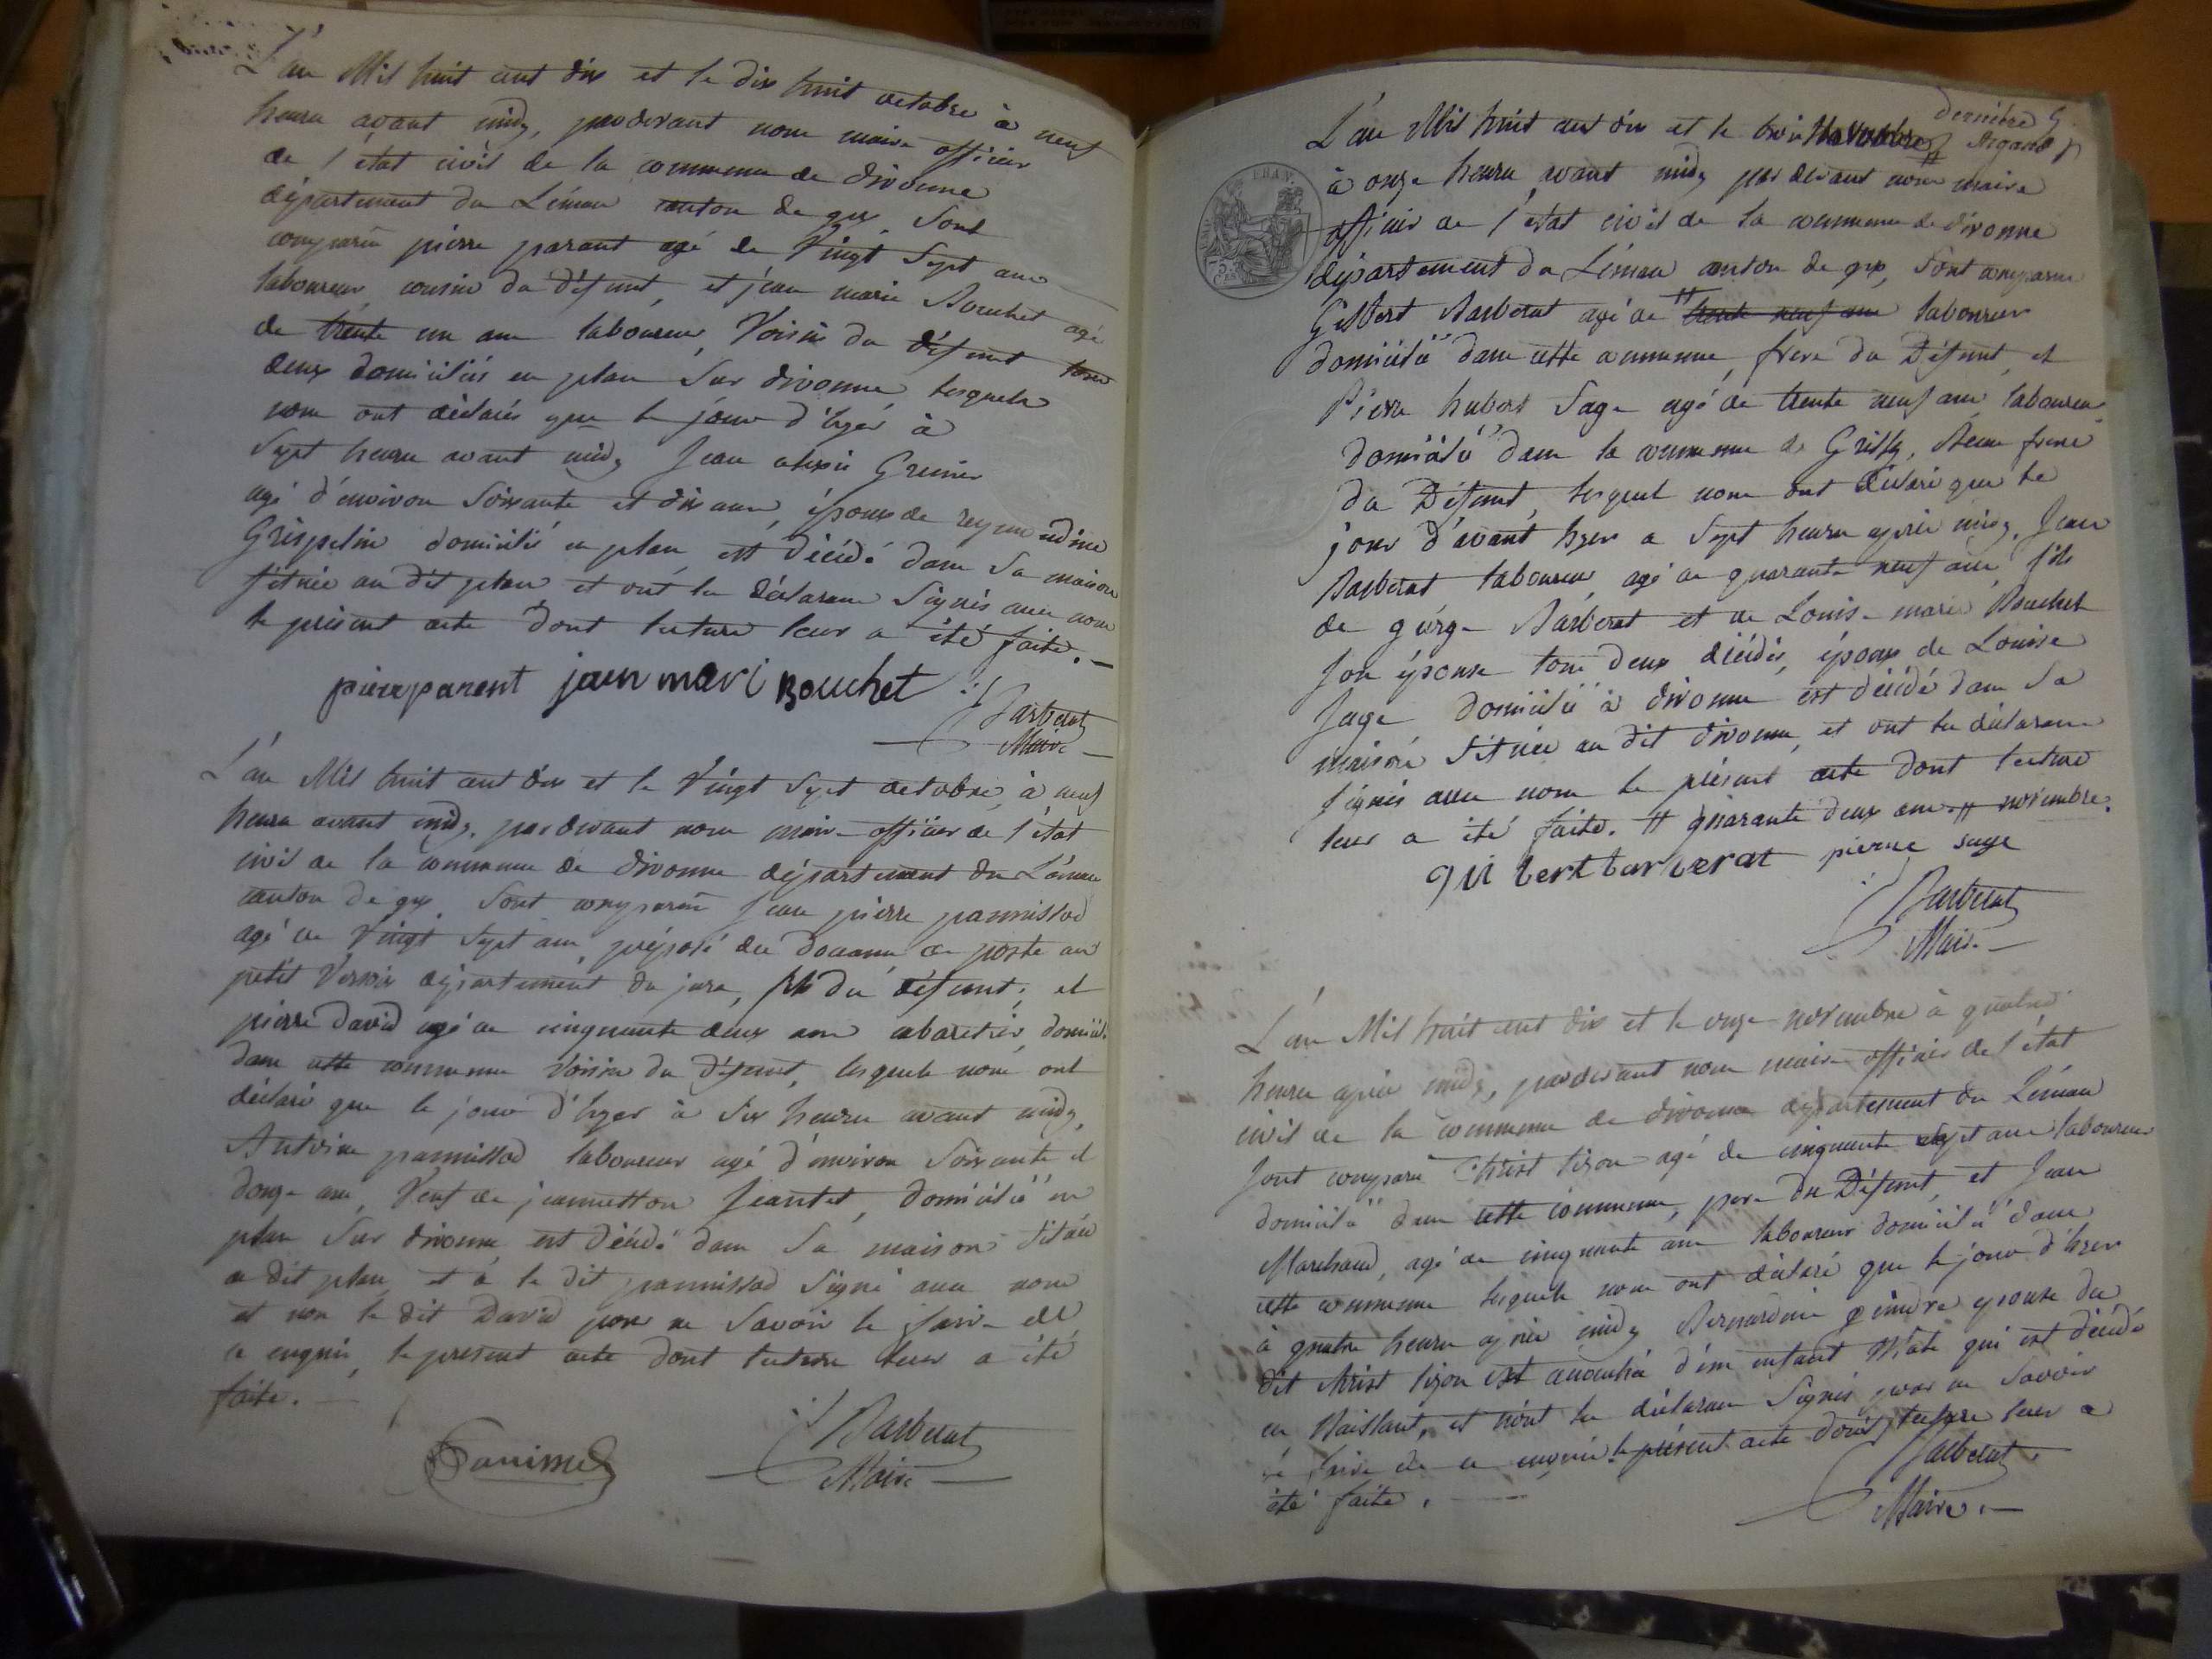 L'an Mil huit cent dix et le dix huit octobre à neuf
heures avant midy, pardevant nous maire officier
de l'état civil de la commune de divonne
département du Léman canton de gex, Sont
comparus pierre parant agé de Vingt Sept ans
laboureur, cousin du défunt, et jean marie Bouchet agé
de trente un ans laboureur, Voisin du défunt tous
deux domiciliés en plan Sur divonne, lesquels
nous ont déclarés que le jour d'hyer à
Sept heures avant midy Jean Grenier
agé d'environ Soixante et dix ans, époux de
domicilié en plan est décédé dans Sa maison
Située au dit plan et ont les déclarans Signés avec nous
le présent acte dont lecture leur a été faite. —
pierre parent jean mari Bouchet
Barberat
Maire
L'an Mil huit cent dix et le Vingt Sept octobre, à neuf
heures avant midy, pardevant nous maire officier de l'état
civil de la commune de divonne département du Léman
canton de gex, Sont comparus Jean pierre pannissod
agé de Vingt Sept ans, préposé des douanes de poste au
petit département du jura, fils du défunt; et
pierre David agé de cinquante deux ans cabaretier, domicil.
dans cette commune Voisin du défunt, lesquels nous ont
déclaré que le jour d'hyer à Six heures avant midy,
Antoine pannissod laboureur agé d'environ Soixante et
douze ans, Veuf de jeannetton Jeantet, domicilié en
plan Sur divonne est décédé dans Sa maison Située
au dit plan et à le dit pannissod Signé avec nous
et non le dit David pour ne Savoir le faire de
ce enquis, le présent acte dont lecture leur a été
faite. —
Barberat
Maire
L'an Mil huit cent dix et le trois
à onze heures avant midy pardevant nous maire
officier de l'état civil de la commune de divonne
département du Léman canton de gex, Sont comparus
Gilbert Barberat agé de # trente neuf ans laboureur
domicilié dans cette commune, frère du Défunt, et
Pierre hubert Sage agé de trente neuf ans laboureur,
domicilié dans la commune de Grilly, Beau frere
du Défunt, lesquels nous ont déclaré que le
jour d'avant hyer a Sept heures après midy, Jean
Barberat laboureur, agé de quarante neuf ans, fils
de george Barberat et de Louise marie Bouchet
Son épouse tous deux décédés, époux de Louise
Sage domicilié à divonne est décédé dans Sa
maison Située au dit divonne, et ont les déclarans
Signés avec nous le présent acte dont lecture
leur a été faite. # quarante deux ans. # novembre.
gilbert barberat pierre sage
Barberat
Maire —
L'an Mil huit cent dix et le onze novembre à quatre
heures après midy, pardevant nous maire officier de l'état
civil de la commune de divonne département du Léman
Sont comparus Christ agé de cinquante Sept ans laboureur
domicilié dans cette commune, père du Défunt, et Jean
Marchand, agé de cinquante ans laboureur domicilié dans
cette commune lesquels nous ont déclaré que le jour d'hyer
à quatre heures après midy Bernardine épouse du
dit Christ est accouchée d'un enfant Mâle qui est décédé
en Naissant, et n'ont les déclarans Signés pour ne Savoir
le faire de ce enquis le présent acte dont lecture leur a
été faite. —
Barberat
Maire. —